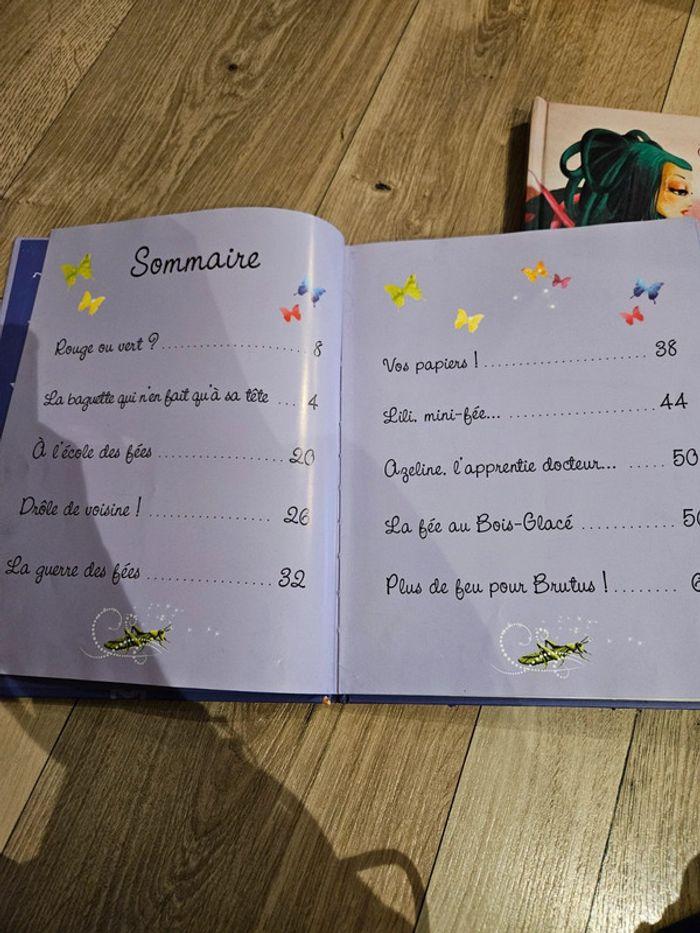 Sommaire
Rouge ou vert ? ........................ 8
La baguette qui n'en fait qu'à sa tête .... 4
À l'école des fées ................... 20
Drôle de voisine ! .................. 26
La guerre des fées .................. 32
Vos papiers ! ........................ 38
Lili, mini-fée... ...................... 44
Azeline, l'apprentie docteur... ..... 50
La fée au Bois-Glacé ............
Plus de feu pour Brutus ! ........